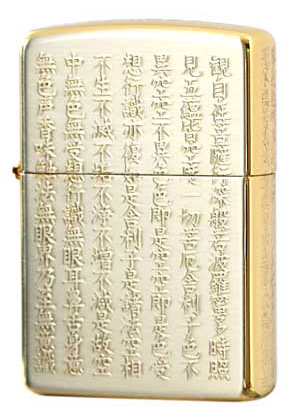 觀自在菩薩行深般若波羅蜜多時照
見五蘊皆空度一切苦厄舎利子色不
異空空不異色色即是空空即是色受
想行識亦復如是舎利子是諸法空相
不生不滅不垢不浄不増不減是故空
中無色無受想行識無眼耳鼻舌身意
無色声香味触法無眼界乃至無意識